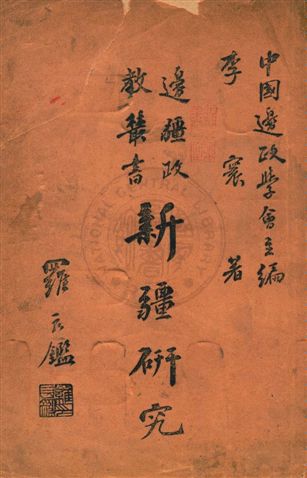 中國邊政學會主編
李寰著
邊疆政教叢書
新疆研究
羅家鑑
NATIONAL CENTRAL LIBRARY